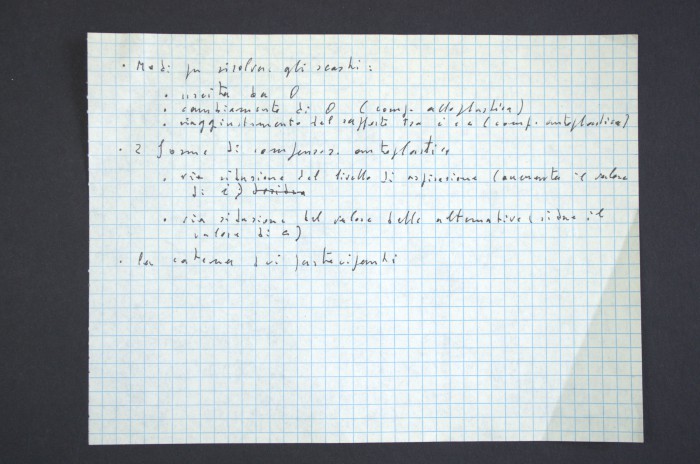 · Modi per risolvere gli scarti:
· uscita da O
· cambiamento di O (comp. alloplastica)
· raggiustamento del rapporto tra i e a (comp. autoplastica)
· 2 forme di compensaz. autoplastica
· via riduzione del livello di aspirazione (aumenta il valore
di i)
· via riduzione del valore delle alternative (riduce il
valore di a)
· La catena dei partecipanti